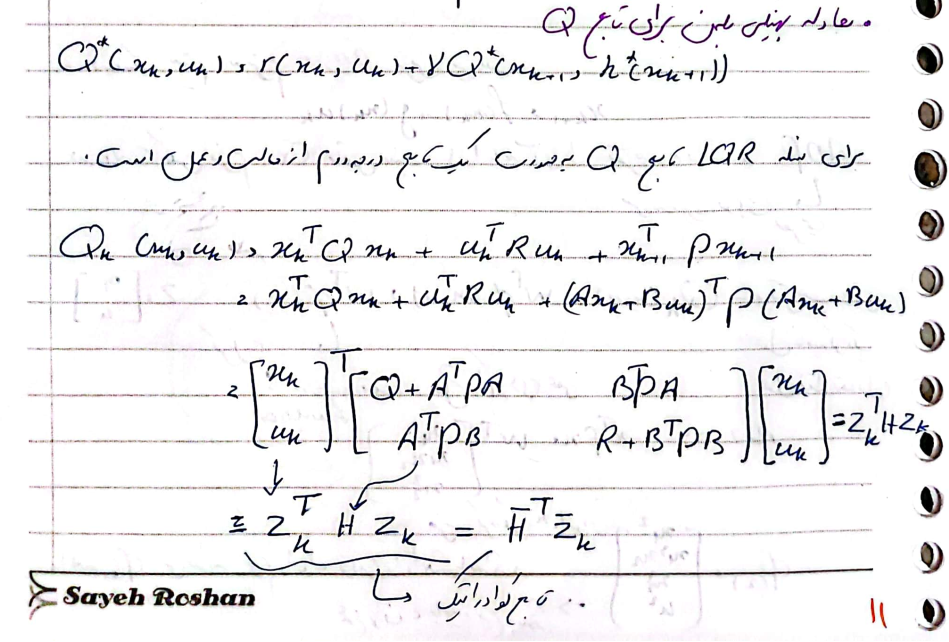 • معادله بهینگی بلمن برای تابع Q
Q*(xₖ, uₖ) = r(xₖ, uₖ) + γQ*(xₖ₊₁, h*(xₖ₊₁))
برای مسئله LQR تابع Q به صورت یک تابع درجه دوم از حالت و عمل است.
Qₖ(xₖ, uₖ) = xₖᵀQxₖ + uₖᵀRuₖ + xₖ₊₁ᵀPxₖ₊₁
= xₖᵀQxₖ + uₖᵀRuₖ + (Axₖ+Buₖ)ᵀP(Axₖ+Buₖ)
= [xₖ; uₖ]ᵀ [Q + AᵀPA  BᵀPA; AᵀPB  R + BᵀPB] [xₖ; uₖ] = ZₖᵀHZₖ
= ZₖᵀHZₖ = H̄ᵀZ̄ₖ
تابع کوادراتیک
Sayeh Roshan
11